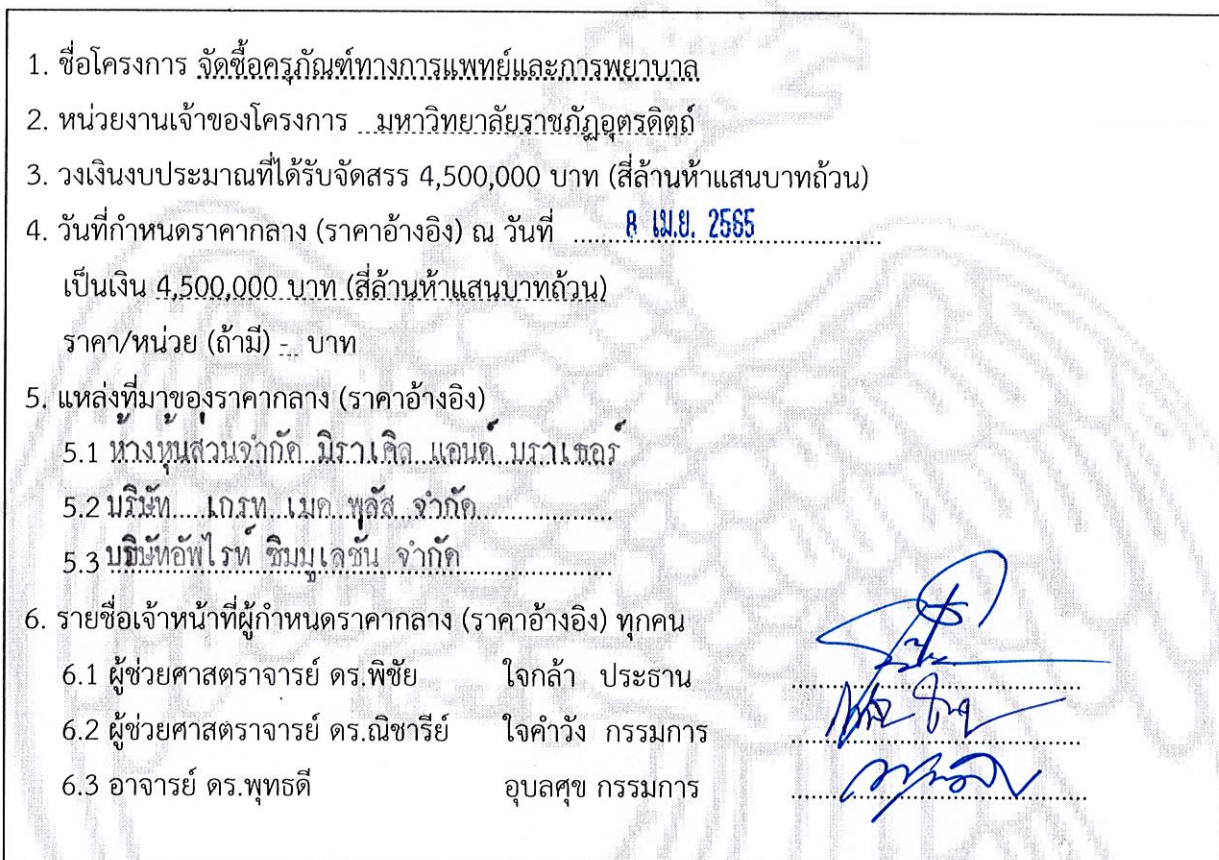 1. ชื่อโครงการ จัดซื้อครุภัณฑ์ทางการแพทย์และการพยาบาล
2. หน่วยงานเจ้าของโครงการ ...มหาวิทยาลัยราชภัฏอุตรดิตถ์
3. วงเงินงบประมาณที่ได้รับจัดสรร 4,500,000 บาท (สี่ล้านห้าแสนบาทถ้วน)
4. วันที่กำหนดราคากลาง (ราคาอ้างอิง) ณ วันที่ ........8 เม.ย. 2565....................
เป็นเงิน 4,500,000 บาท (สี่ล้านห้าแสนบาทถ้วน)
ราคา/หน่วย (ถ้ามี) -.. บาท
5. แหล่งที่มาของราคากลาง (ราคาอ้างอิง)
5.1 ห้างหุ้นส่วนจำกัด มิราเคิล แอนด์ บราเธอร์
5.2 บริษัท เกรท เมด พลัส จำกัด
5.3 บริษัทอัพไรท์ ซิมมูเลชั่น จำกัด
6. รายชื่อเจ้าหน้าที่ผู้กำหนดราคากลาง (ราคาอ้างอิง) ทุกคน
6.1 ผู้ช่วยศาสตราจารย์ ดร.พิชัย ใจกล้า ประธาน
6.2 ผู้ช่วยศาสตราจารย์ ดร.ณิชารีย์ ใจคำวัง กรรมการ
6.3 อาจารย์ ดร.พุทธดี อุบลศุข กรรมการ